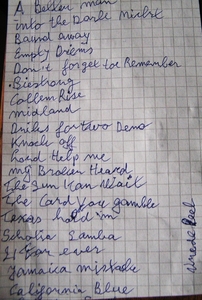 A better man
into the Darle Michst
Baund away
Empty Drems
Don't forget toe Remember
Biestrong
Callem Rise
midland
Drikes for two Demo
Knock off
hord Help me
my Broken Heard
The Sun Kan Wait
The Card you gamble
Texas hold'm
Scholia Samba
for ever
Jamaica mistake
California Blue